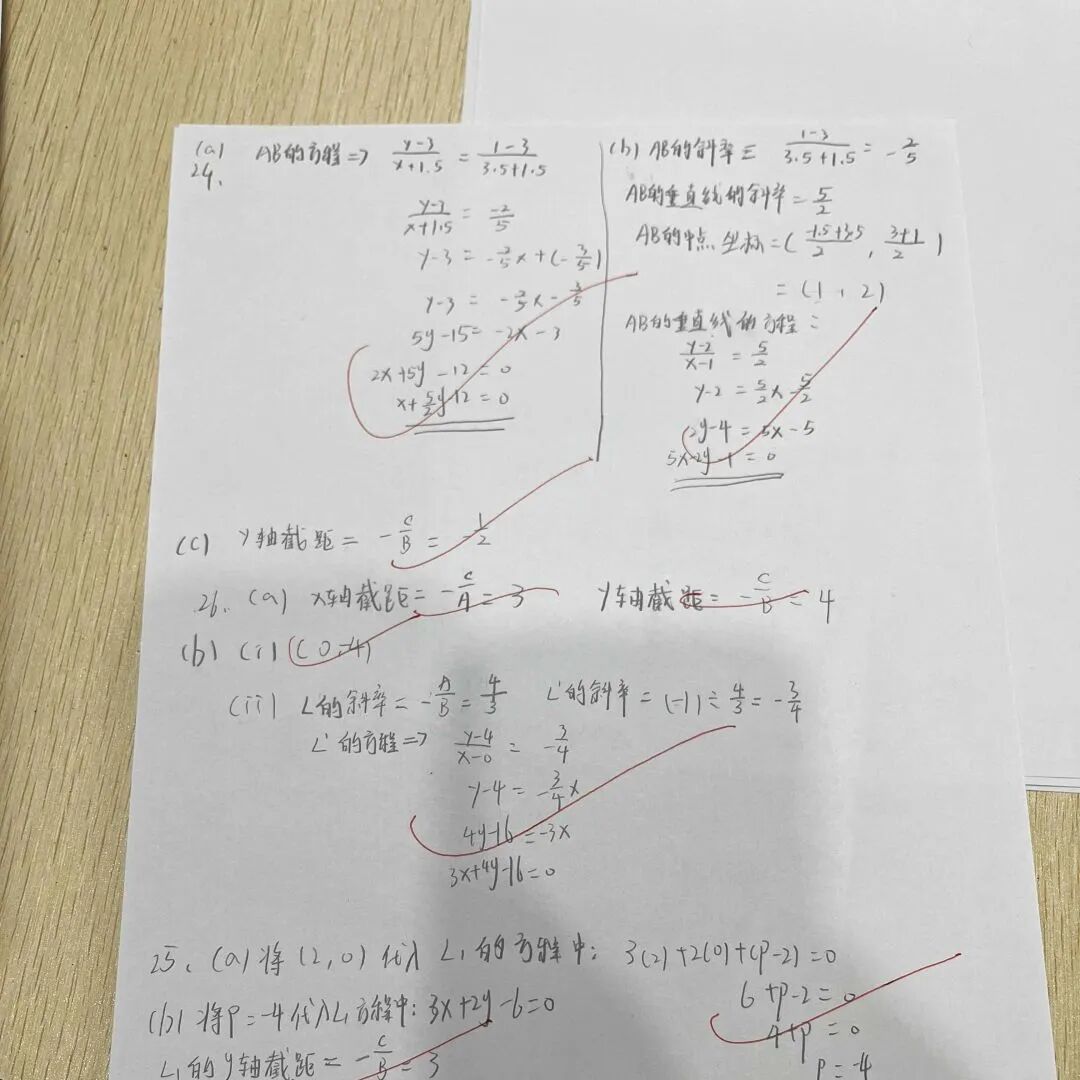 (a) AB的方程⇒ (y-3)/(x+1.5) = (1-3)/(3.5+1.5)
24.
(y-3)/(x+1.5) = -2/5
y-3 = -2/5x+(-3/5)
y-3 = -2/5x-3/5
5y-15=-2x-3
2x+5y-12=0
x+5/2y-12=0
(b) AB的斜率= (1-3)/(3.5+1.5) = -2/5
AB的垂直线的斜率=5/2
AB的中点坐标=( (-1.5+3.5)/2 , (3+1)/2 )
=(1,2)
AB的垂直线的方程:
(y-2)/(x-1) = 5/2
y-2=5/2x-5/2
2y-4=5x-5
5x-2y-1=0
(c) y轴截距= -C/B = -1/2
26. (a) x轴截距= -C/A = 3 y轴截距= -C/B = 4
(b) (i) (0,4)
(ii) L的斜率= -A/B = 4/3 L'的斜率=(-1)÷4/3=-3/4
L'的方程⇒ (y-4)/(x-0) = -3/4
y-4=-3/4x
4y-16=-3x
3x+4y-16=0
25. (a) 将(2,0)代入L₁的方程中: 3(2)+2(0)+(p-2)=0
6+p-2=0
4+p=0
p=-4
(b) 将p=-4代入L₁方程中: 3x+2y-6=0
L₁的y轴截距= -C/B = 3